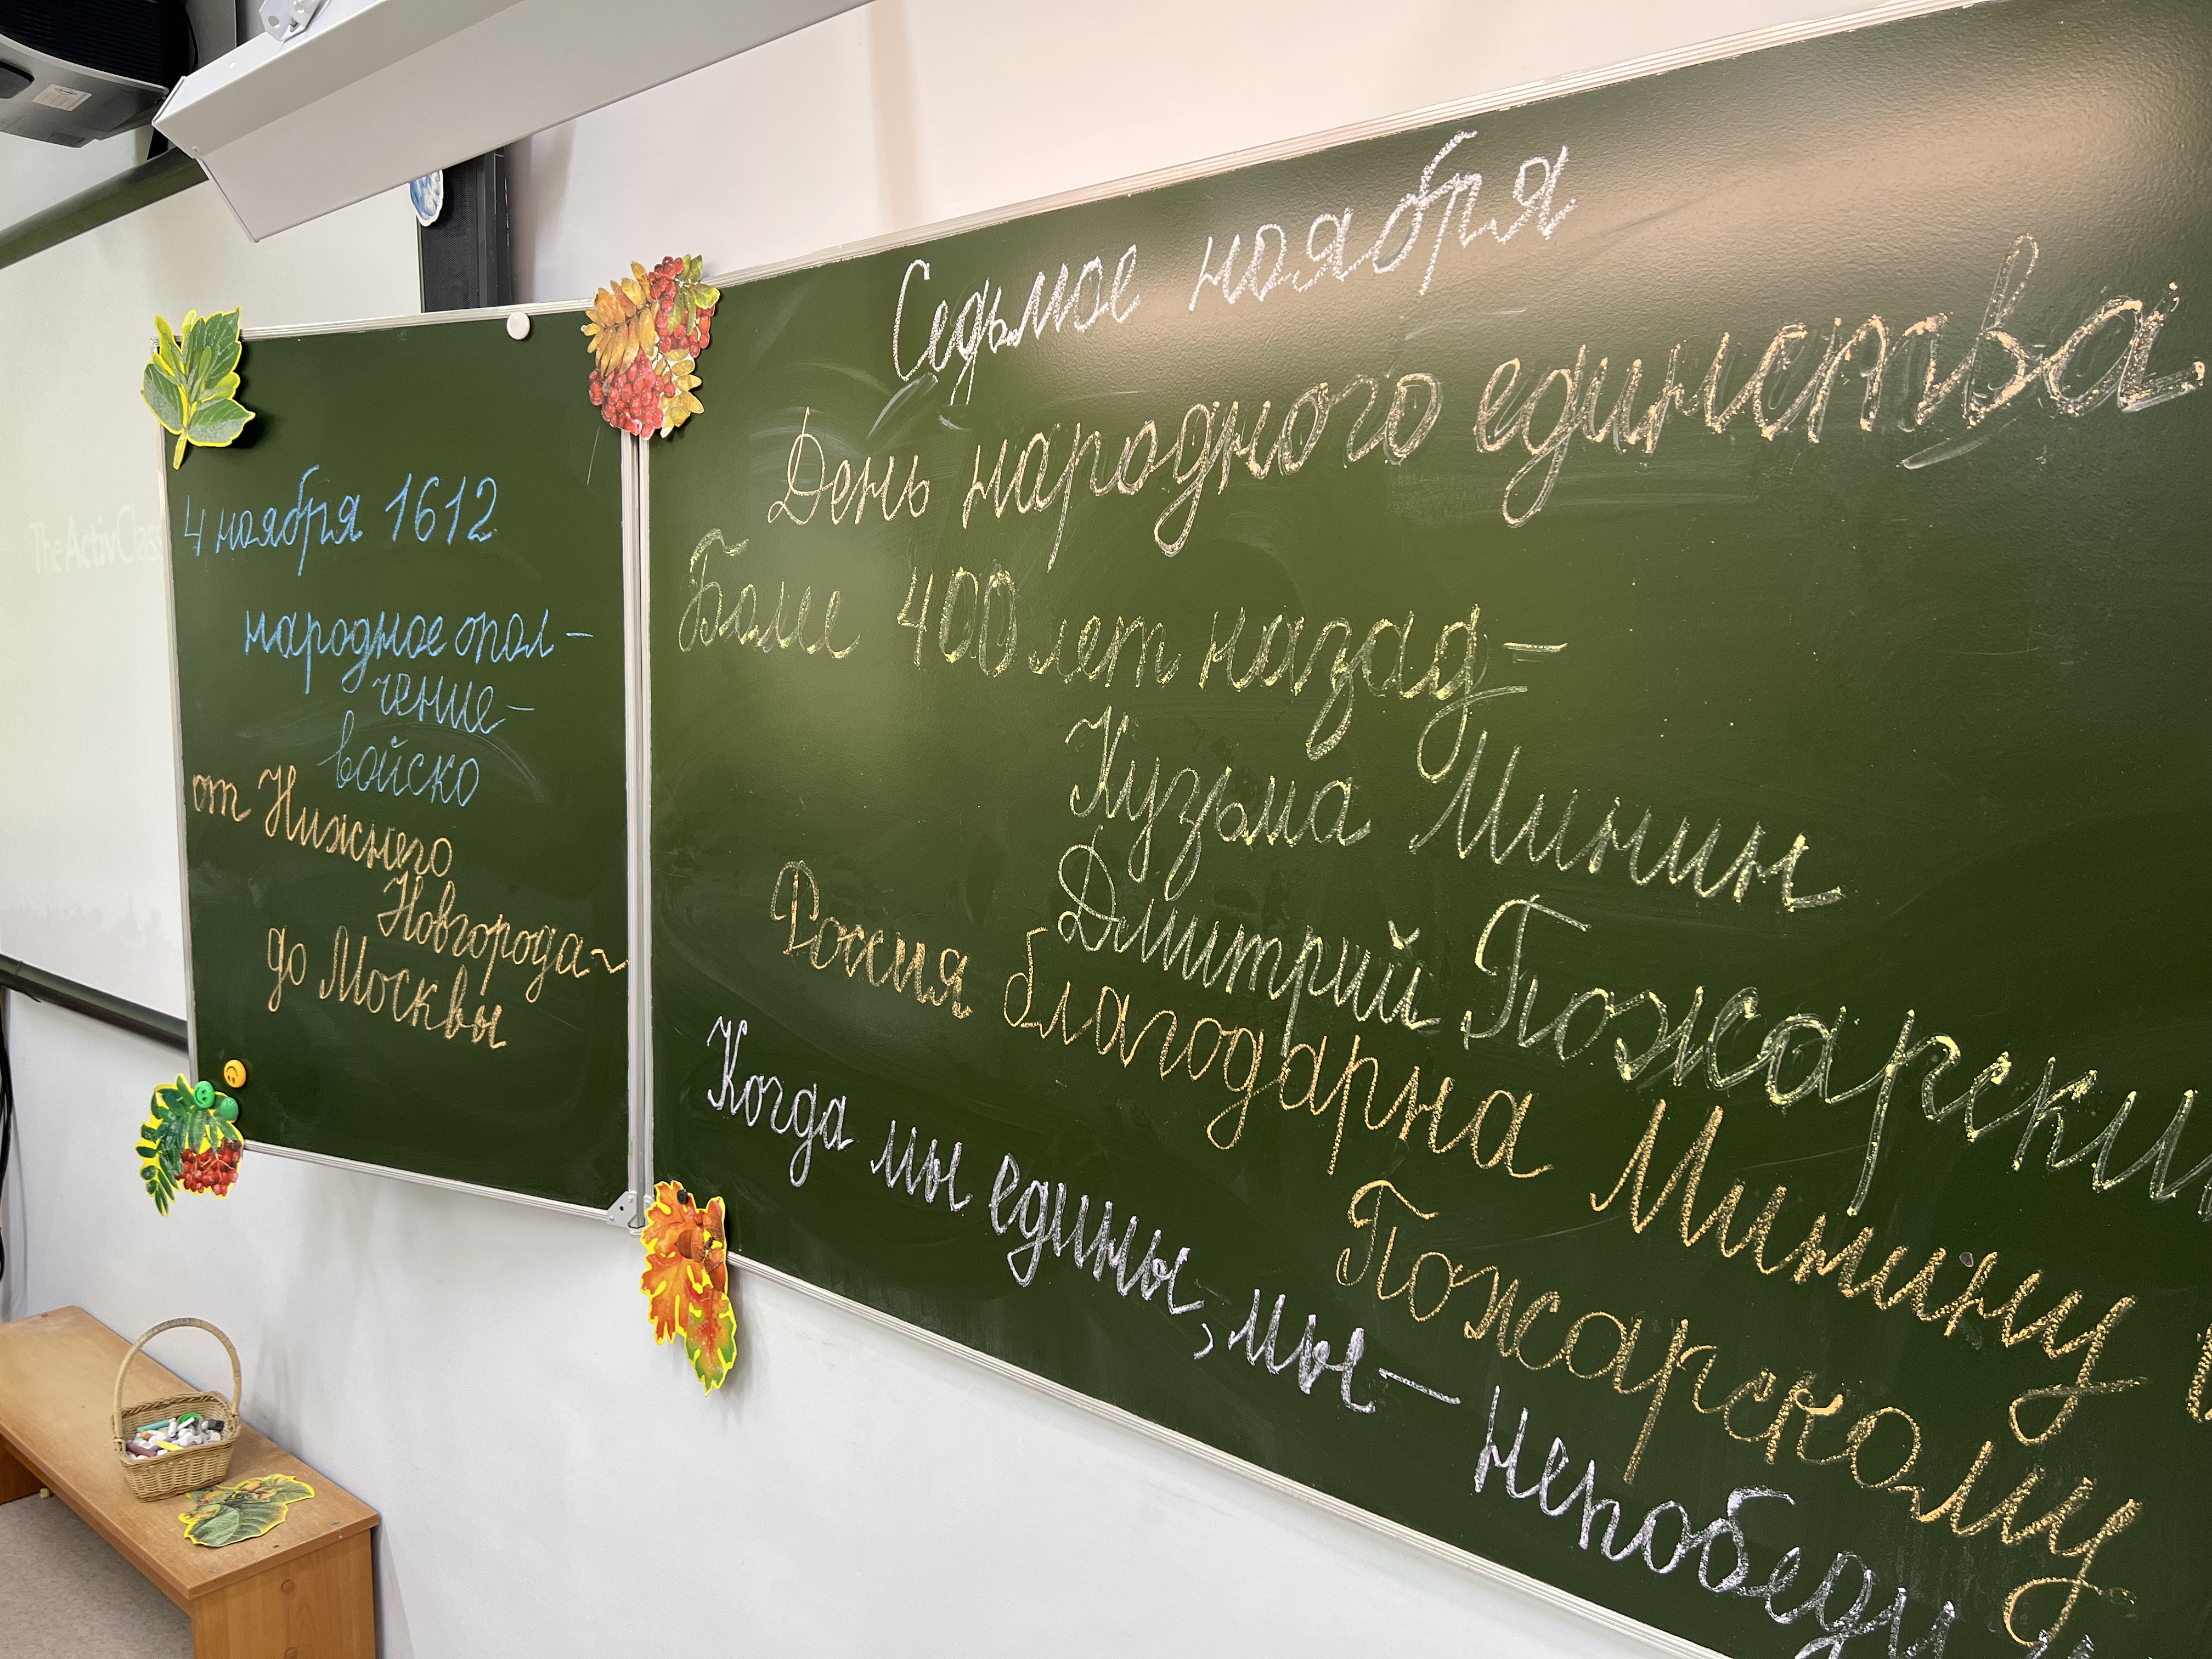 The ActivClass
4 ноября 1612
народное опол-
чение-
войско
от Нижнего
Новгорода-
до Москвы
Седьмое ноября
День народного единства.
Более 400 лет назад-
Кузьма Минин
Дмитрий Пожарский
Россия благодарна Минину
Пожарскому
Когда мы едины, мы- непобеди